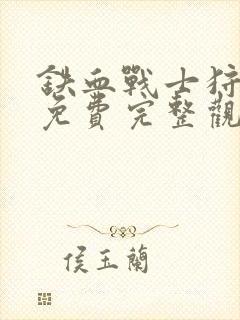 鐵血戰士狩
免費完整觀
侯玉蘭